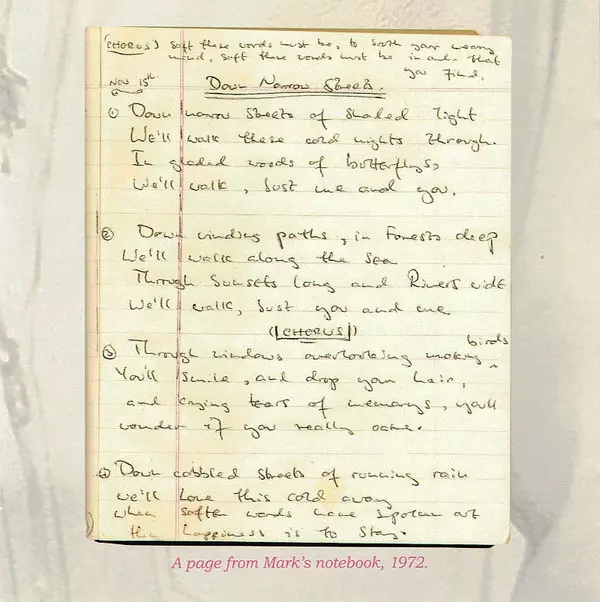 (CHORUS) Soft these words must be, to sooth your weary
mind, Soft these words must be in that
you find.
Nov 15th.
Down Narrow Streets.
① Down narrow Streets of Shaded light
We'll walk these cold nights through.
In gladed woods of butterflys,
We'll walk, Just me and you.
② Down winding paths, in Forests deep
We'll walk along the Sea
Through Sunsets long and Rivers wide
We'll walk, Just you and me
(CHORUS)
birds
③ Through windows overlooking mocking
You'll Smile, and drop your hair,
and crying tears of memorys, you'll
wonder if you really care.
④ Down cobbled Streets of running rain
we'll Love this cold away
when words have Spoken out
the happiness is to Stay.
A page from Mark's notebook, 1972.